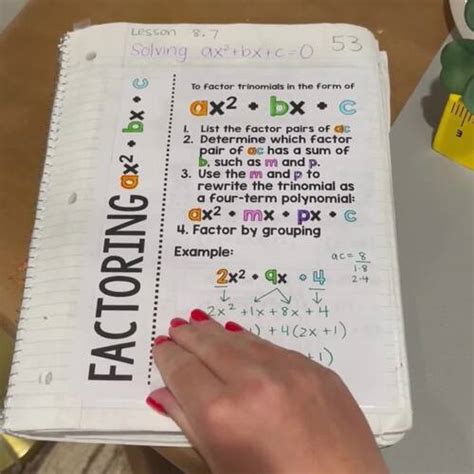 Lesson 8.7
Solving ax²+bx+c=0
53
FACTORING ax² + bx + c
To factor trinomials in the form of
ax² + bx + c
1. List the factor pairs of ac
2. Determine which factor
pair of ac has a sum of
b, such as m and p.
3. Use the m and p to
rewrite the trinomial as
a four-term polynomial:
ax² + mx + px + c
4. Factor by grouping
Example:
ac = 8
1·8
2·4
2x² + 9x + 4
2x² + 1x + 8x + 4
1) + 4(2x+1)
+1)
3